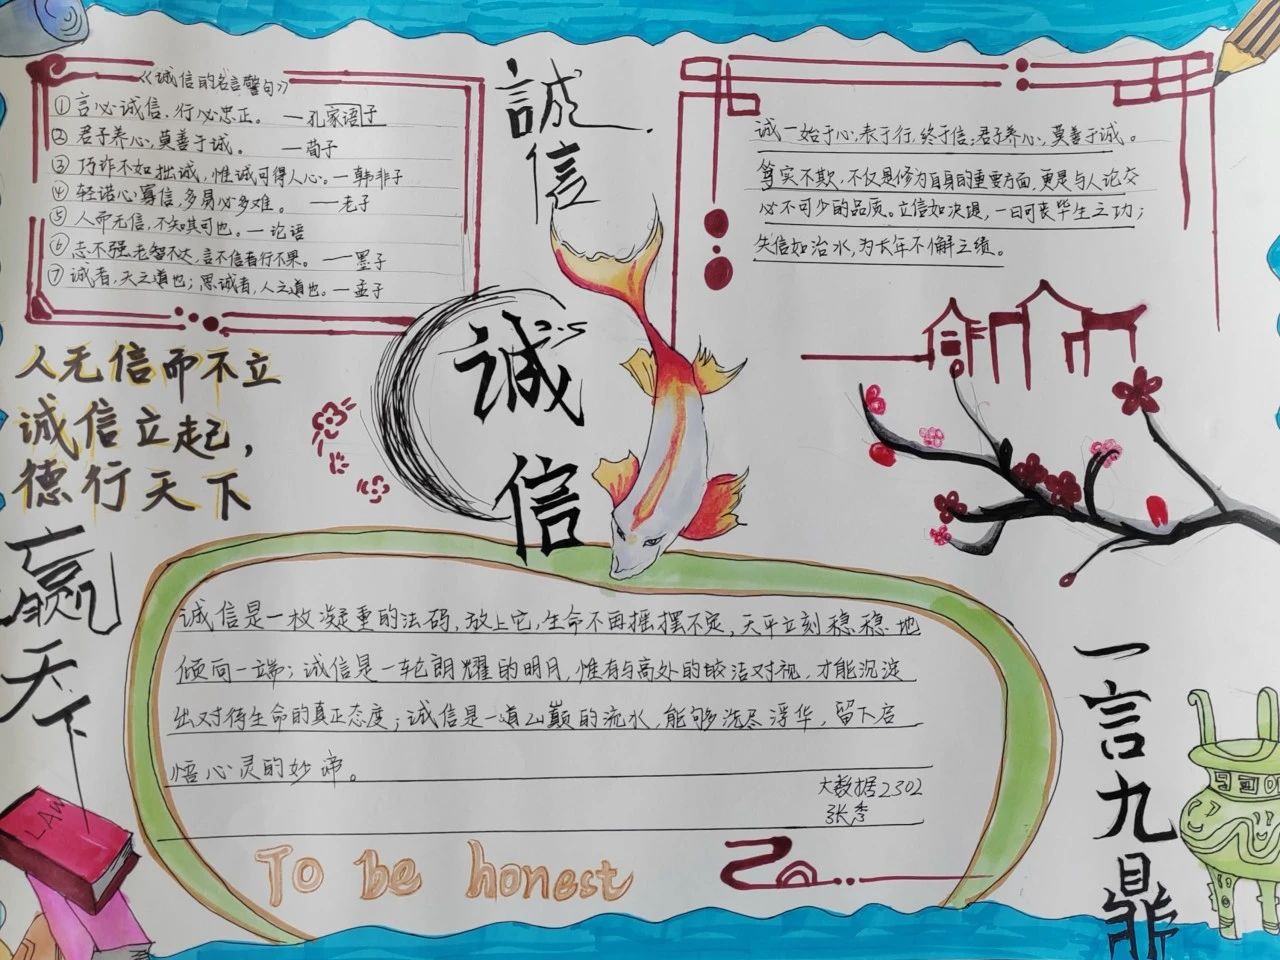 《诚信的名言警句》
①言必诚信，行必忠正。 —孔家语子
②君子养心，莫善于诚。 —荀子
③巧诈不如拙诚，惟诚可得人心。—韩非子
④轻诺必寡信，多易必多难。 —老子
⑤人而无信，不知其可也。—论语
⑥志不强者智不达，言不信者行不果。 —墨子
⑦诚者，天之道也；思诚者，人之道也。—孟子
誠信
诚一始于心，表于行，终于信，君子养心，莫善于诚。
笃实不欺，不仅是修为自身的重要方面，更是与人论交
必不可少的品质。立信如决堤，一日可丧毕生之功；
失信如治水，为长年不懈之绩。
诚信
人无信而不立
诚信立起，
德行天下
赢天下
诚信是一枚凝重的法码，放上它，生命不再摇摆不定，天平立刻稳稳地
倾向一端；诚信是一轮朗耀的明月，惟有与高处的皎洁对视，才能沉淀
出对待生命的真正态度；诚信是一道山巅的流水，能够洗尽浮华，留下启
悟心灵的妙谛。
大数据2302
张秀
To be honest
一言九鼎
LAW